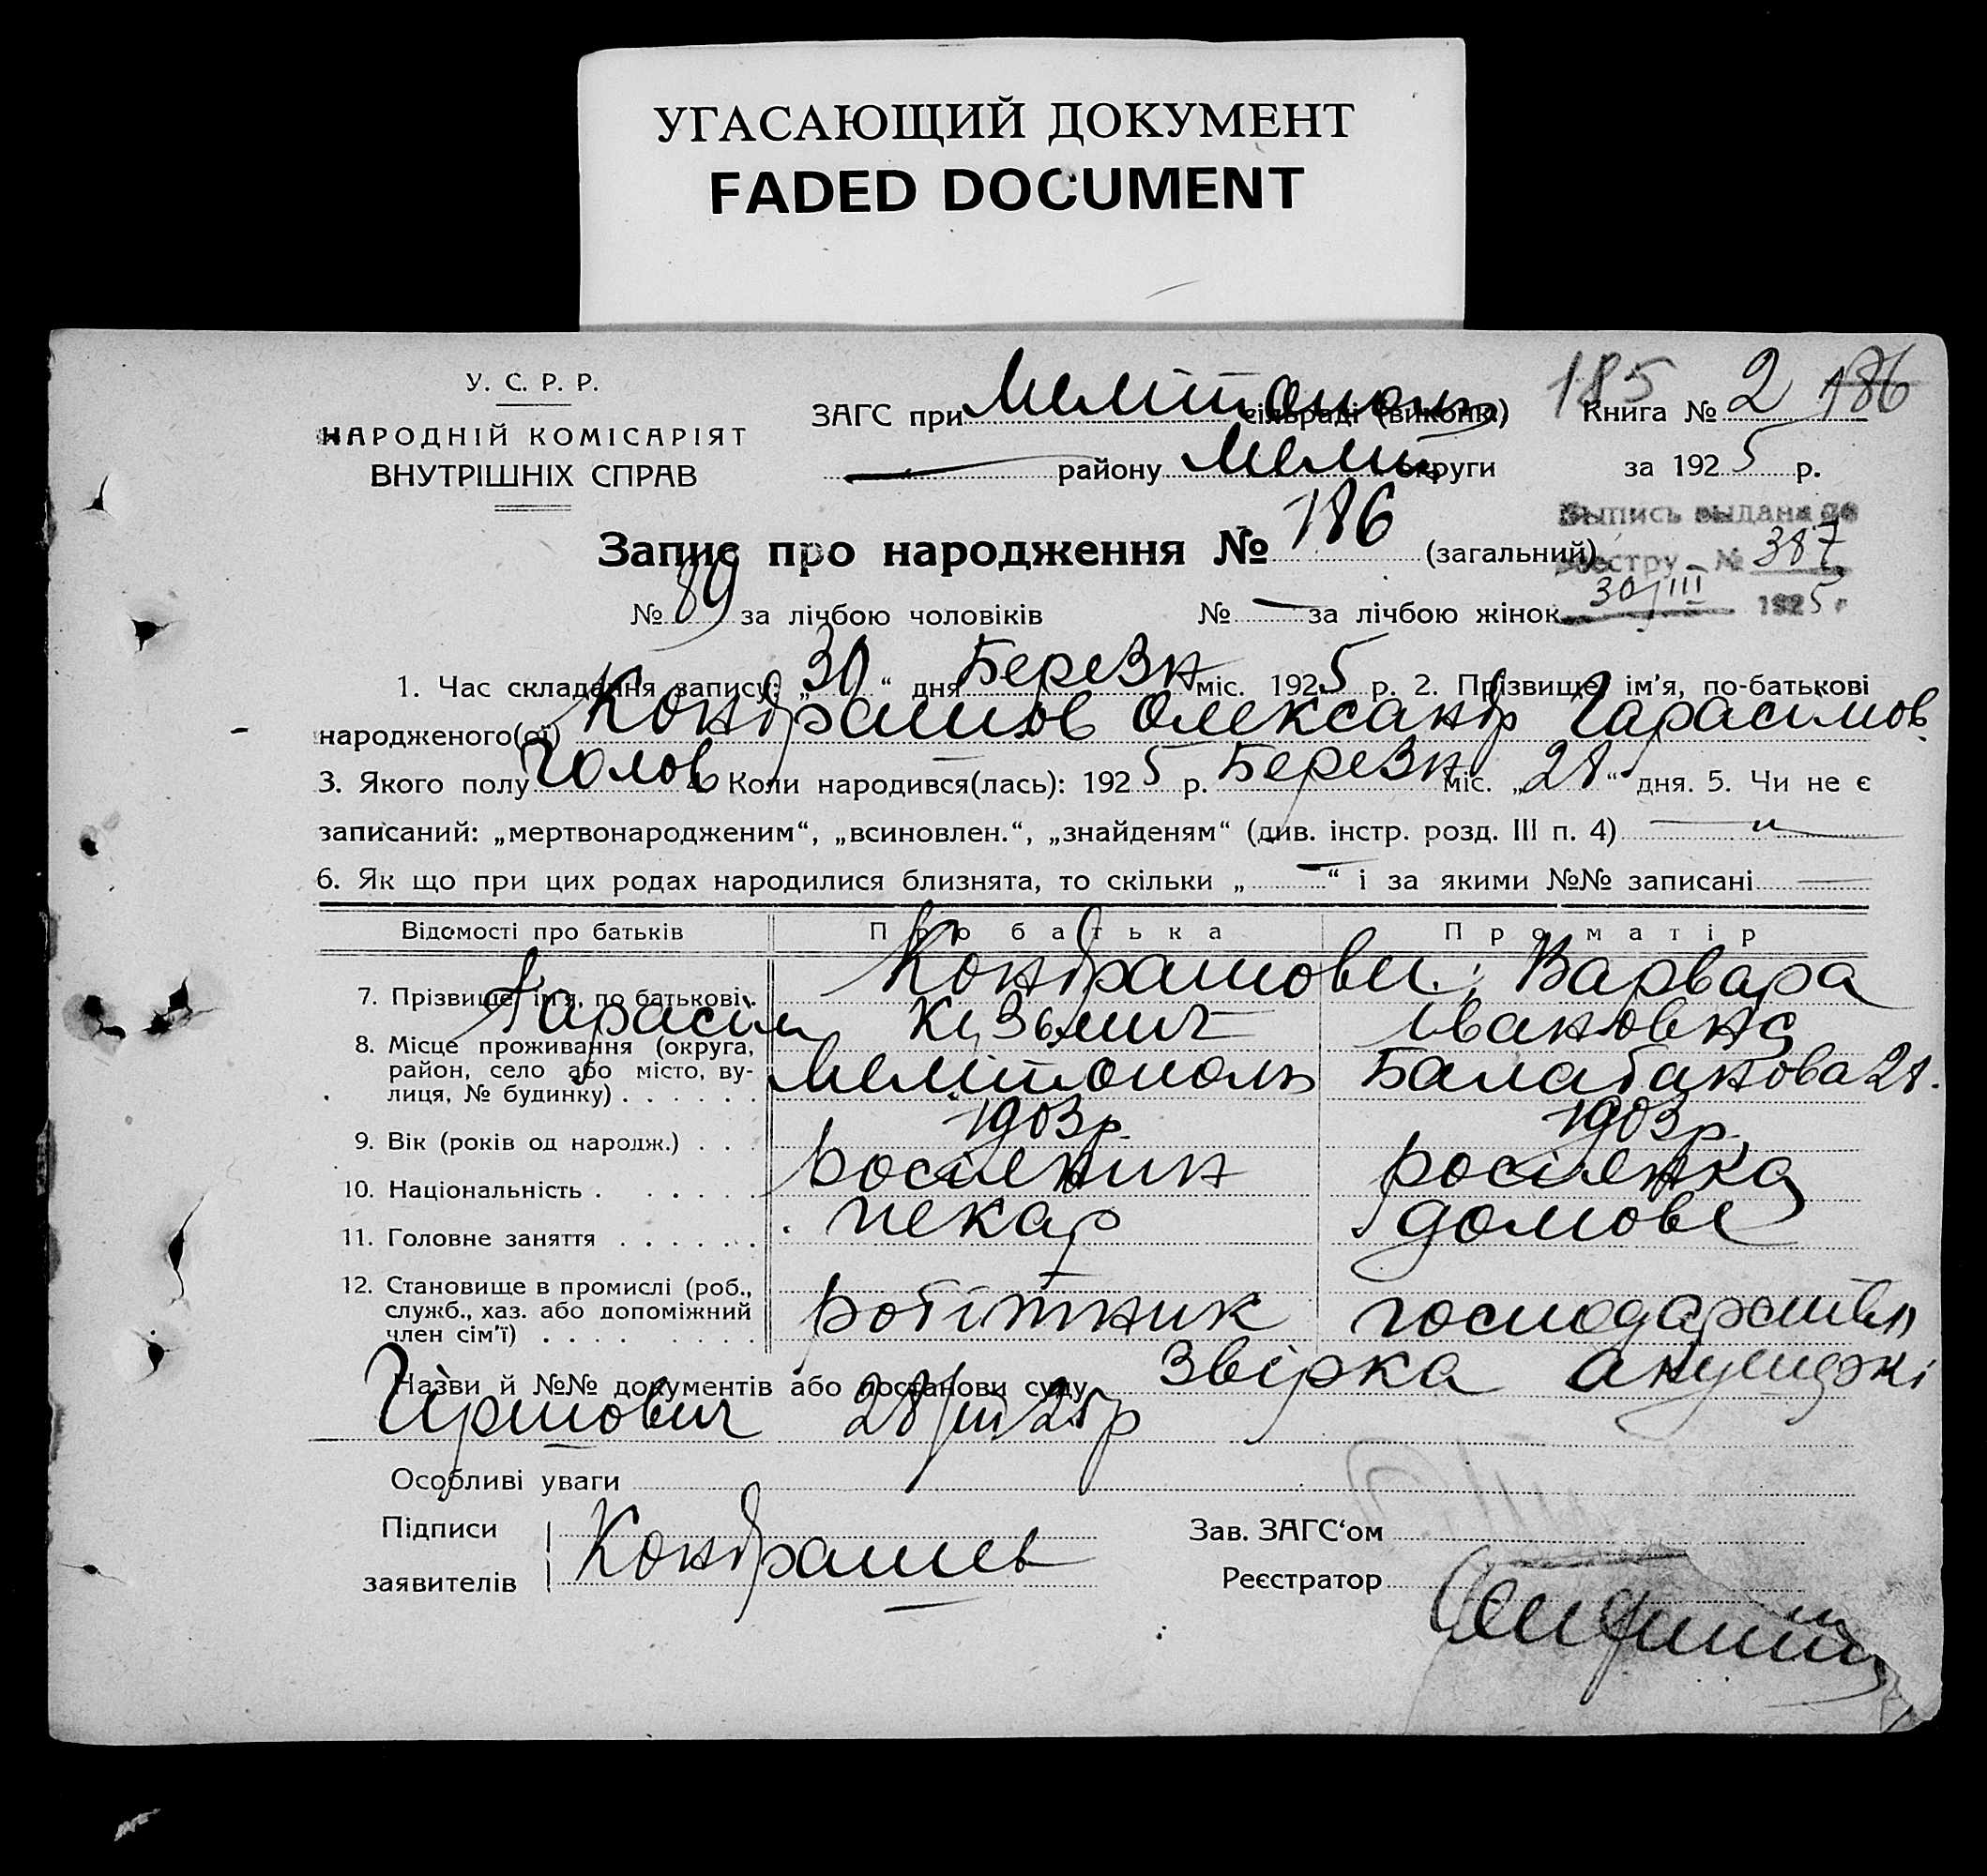 УГАСАЮЩИЙ ДОКУМЕНТ
FADED DOCUMENT
У. С. Р. Р.
НАРОДНІЙ КОМІСАРІЯТ
ВНУТРІШНІХ СПРАВ
ЗАГС при Мелітополь сільраді (виконк.)
185 Книга № 2 186
району Меліт округи
за 1925 р.
Выпись выдана по
реестру № 387
30/III 1925 г
Запис про народження № 186 (загальний)
№ 89 за лічбою чоловіків № — за лічбою жінок
1. Час складання запису: „30“ дня Березн міс. 1925 р. 2. Прізвище, ім'я, по-батькові
народженого(ої) Кондрашов Олександр Гарасимов.
3. Якого полу Чолов 4. Коли народився(лась): 1925 р. Березн міс. „28“ дня. 5. Чи не є
записаний: „мертвонародженим“, „всиновлен.“, „знайденям“ (див. інстр. розд. III п. 4) — „ —
6. Як що при цих родах народилися близнята, то скільки „—“ і за якими №№ записані —
Відомості про батьків Про батька Про матір
7. Прізвище, ім'я, по батькові. Кондрашови: Варвара
Гарасім Кузьмич Івановна
8. Місце проживання (округа,
район, село або місто, ву-
лиця, № будинку) . . . . . . Мелітополь Балабанова 28.
9. Вік (років од народж.) . . . 1903 р. 1903 р.
10. Національність . . . . . . росіянин росіянка
11. Головне заняття . . . . . . пекар домове
12. Становище в промислі (роб.,
служб., хаз. або допоміжний
член сім'ї) . . . . . . . . . робітник господарство
Назви й №№ документів або постанови суду Звірка акушерки
Гіршович 28/III 25 р
Особливі уваги
Підписи
заявителів Кондрашев
Зав. ЗАГС'ом
Реєстратор